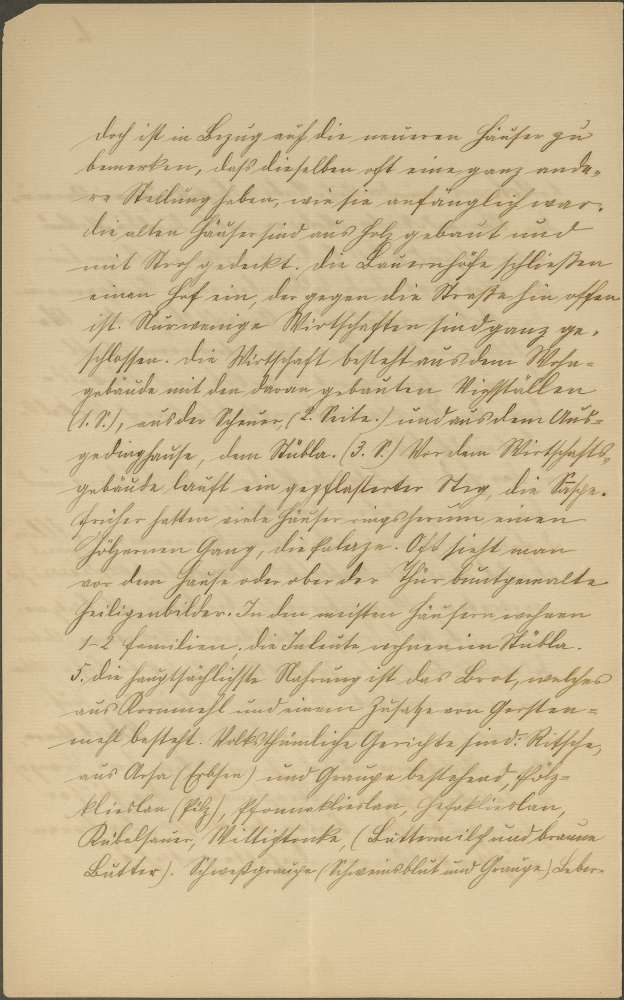 doch ist in Bezug auf die neueren Häuser zu
bemerken, daß dieselben oft eine ganz ande-
re Stellung haben, wie sie anfänglich war.
Die alten Häuser sind aus Holz gebaut und
mit Stroh gedeckt. Die Bauernhöfe schließen
einen Hof ein, der gegen die Straße hin offen
ist. Nur wenige Wirtschaften sind ganz ge-
schlossen. Die Wirtschaft besteht aus dem Wohn-
gebäude mit den daran gebauten Viehställen
(1. S.), aus der Scheuer, (2. Seite.) und aus dem Aus-
gedinghause, dem Stübla. (3. S.) Vor dem Wirtschafts-
gebäude lauft ein gepflasterter Steg, die
Früher hatten viele Häuser ringsherum einen
hölzernen Gang, die Oft sieht man
vor dem Hause oder ober der Thür buntgemalte
Heiligenbilder. In den meisten Häusern wohnen
1-2 Familien, die Inleute wohnen im Stübla.
5. Die hauptsächlichste Nahrung ist das Brot, welches
aus Kornmehl und einem Zusatze von Gersten-
mehl besteht. Volksthümliche Gerichte sind: Ritsche,
aus Arsa (Erbsen) und Graupe bestehend, Pölz-
klieslan (Pilz), Pfonneklieslan, Hefaklieslan,
(Buttermilch und braune
Butter). Schweßgraupe (Schweinsblut und Graupe) Leber-